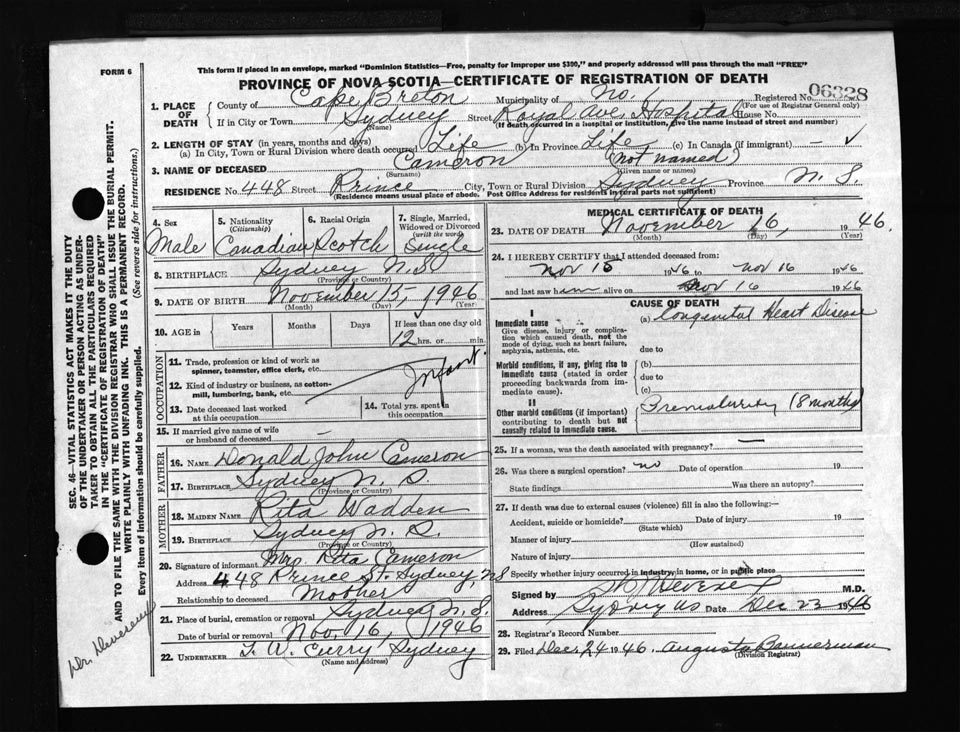 FORM 6
This form if placed in an envelope, marked "Dominion Statistics—Free, penalty for improper use $300," and properly addressed will pass through the mail "FREE"
PROVINCE OF NOVA SCOTIA—CERTIFICATE OF REGISTRATION OF DEATH
Registered No. 06328
(For use of Registrar General only)
1. PLACE OF DEATH
County of Cape Breton Municipality of No. 1
If in City or Town Sydney Street Royal Ave. Hospital House No.
(Name) (If death occurred in a hospital or institution, give the name instead of street and number)
2. LENGTH OF STAY (in years, months and days)
(a) In City, Town or Rural Division where death occurred Life (b) In Province Life (c) In Canada (if immigrant) — ✓
3. NAME OF DECEASED Cameron (not named)
(Surname) (Given name or names)
RESIDENCE No. 448 Street Prince City, Town or Rural Division Sydney Province N. S.
(Residence means usual place of abode. Post Office Address for residents in rural parts not sufficient)
4. Sex
Male
5. Nationality
(Citizenship)
Canadian
6. Racial Origin
Scotch
7. Single, Married, Widowed or Divorced
(writ the word)
Single
8. BIRTHPLACE Sydney N.S.
(Province or Country)
9. DATE OF BIRTH November 15, 1946
(Month) (Day) (Year)
10. AGE in Years Months Days If less than one day old
12 hrs. or min.
OCCUPATION
11. Trade, profession or kind of work as spinner, teamster, office clerk, etc.
Infant
12. Kind of industry or business, as cotton-mill, lumbering, bank, etc.
13. Date deceased last worked at this occupation
14. Total yrs. spent in this occupation
15. If married give name of wife or husband of deceased —
FATHER
16. NAME Donald John Cameron
17. BIRTHPLACE Sydney N. S.
(Province or Country)
MOTHER
18. MAIDEN NAME Rita Wadden
19. BIRTHPLACE Sydney N. S.
(Province or Country)
20. Signature of informant Mrs. Rita Cameron
Address 448 Prince St. Sydney, NS
Relationship to deceased Mother
21. Place of burial, cremation or removal Sydney N. S.
Date of burial or removal Nov. 16, 1946
22. UNDERTAKER T. W. Curry Sydney
(Name and address)
MEDICAL CERTIFICATE OF DEATH
23. DATE OF DEATH November 16, 1946.
(Month) (Day) (Year)
24. I HEREBY CERTIFY that I attended deceased from
Nov 15 1946 to Nov 16 1946
and last saw him alive on Nov 16 1946
CAUSE OF DEATH
I
Immediate cause
Give disease, injury or complication which caused death, not the mode of dying, such as heart failure, asphyxia, asthenia, etc.
(a) Congenital Heart Disease
due to
Morbid conditions, if any, giving rise to immediate cause (stated in order proceeding backwards from immediate cause).
(b)
due to
(c)
II
Other morbid conditions (if important) contributing to death but not causally related to immediate cause.
Prematurity (8 months)
25. If a woman, was the death associated with pregnancy? —
26. Was there a surgical operation? no Date of operation 19
State findings Was there an autopsy?
27. If death was due to external causes (violence) fill in also the following:
Accident, suicide or homicide? Date of injury 19
(State which)
Manner of injury
(How sustained)
Nature of injury
Specify whether injury occurred in industry, in home, or in public place
Signed by M.D.
Address Sydney NS Date Dec 23 1946
28. Registrar's Record Number
29. Filed Dec. 24 1946. Augusta Bannerman
(Division Registrar)
SEC. 46—VITAL STATISTICS ACT MAKES IT THE DUTY
OF THE UNDERTAKER OR PERSON ACTING AS UNDER-
TAKER TO OBTAIN ALL THE PARTICULARS REQUIRED
IN THE "CERTIFICATE OF REGISTRATION OF DEATH"
AND TO FILE THE SAME WITH THE DIVISION REGISTRAR WHO SHALL ISSUE THE BURIAL PERMIT.
WRITE PLAINLY WITH UNFADING INK. THIS IS A PERMANENT RECORD.
Every item of information should be carefully supplied. (See reverse side for instructions.)